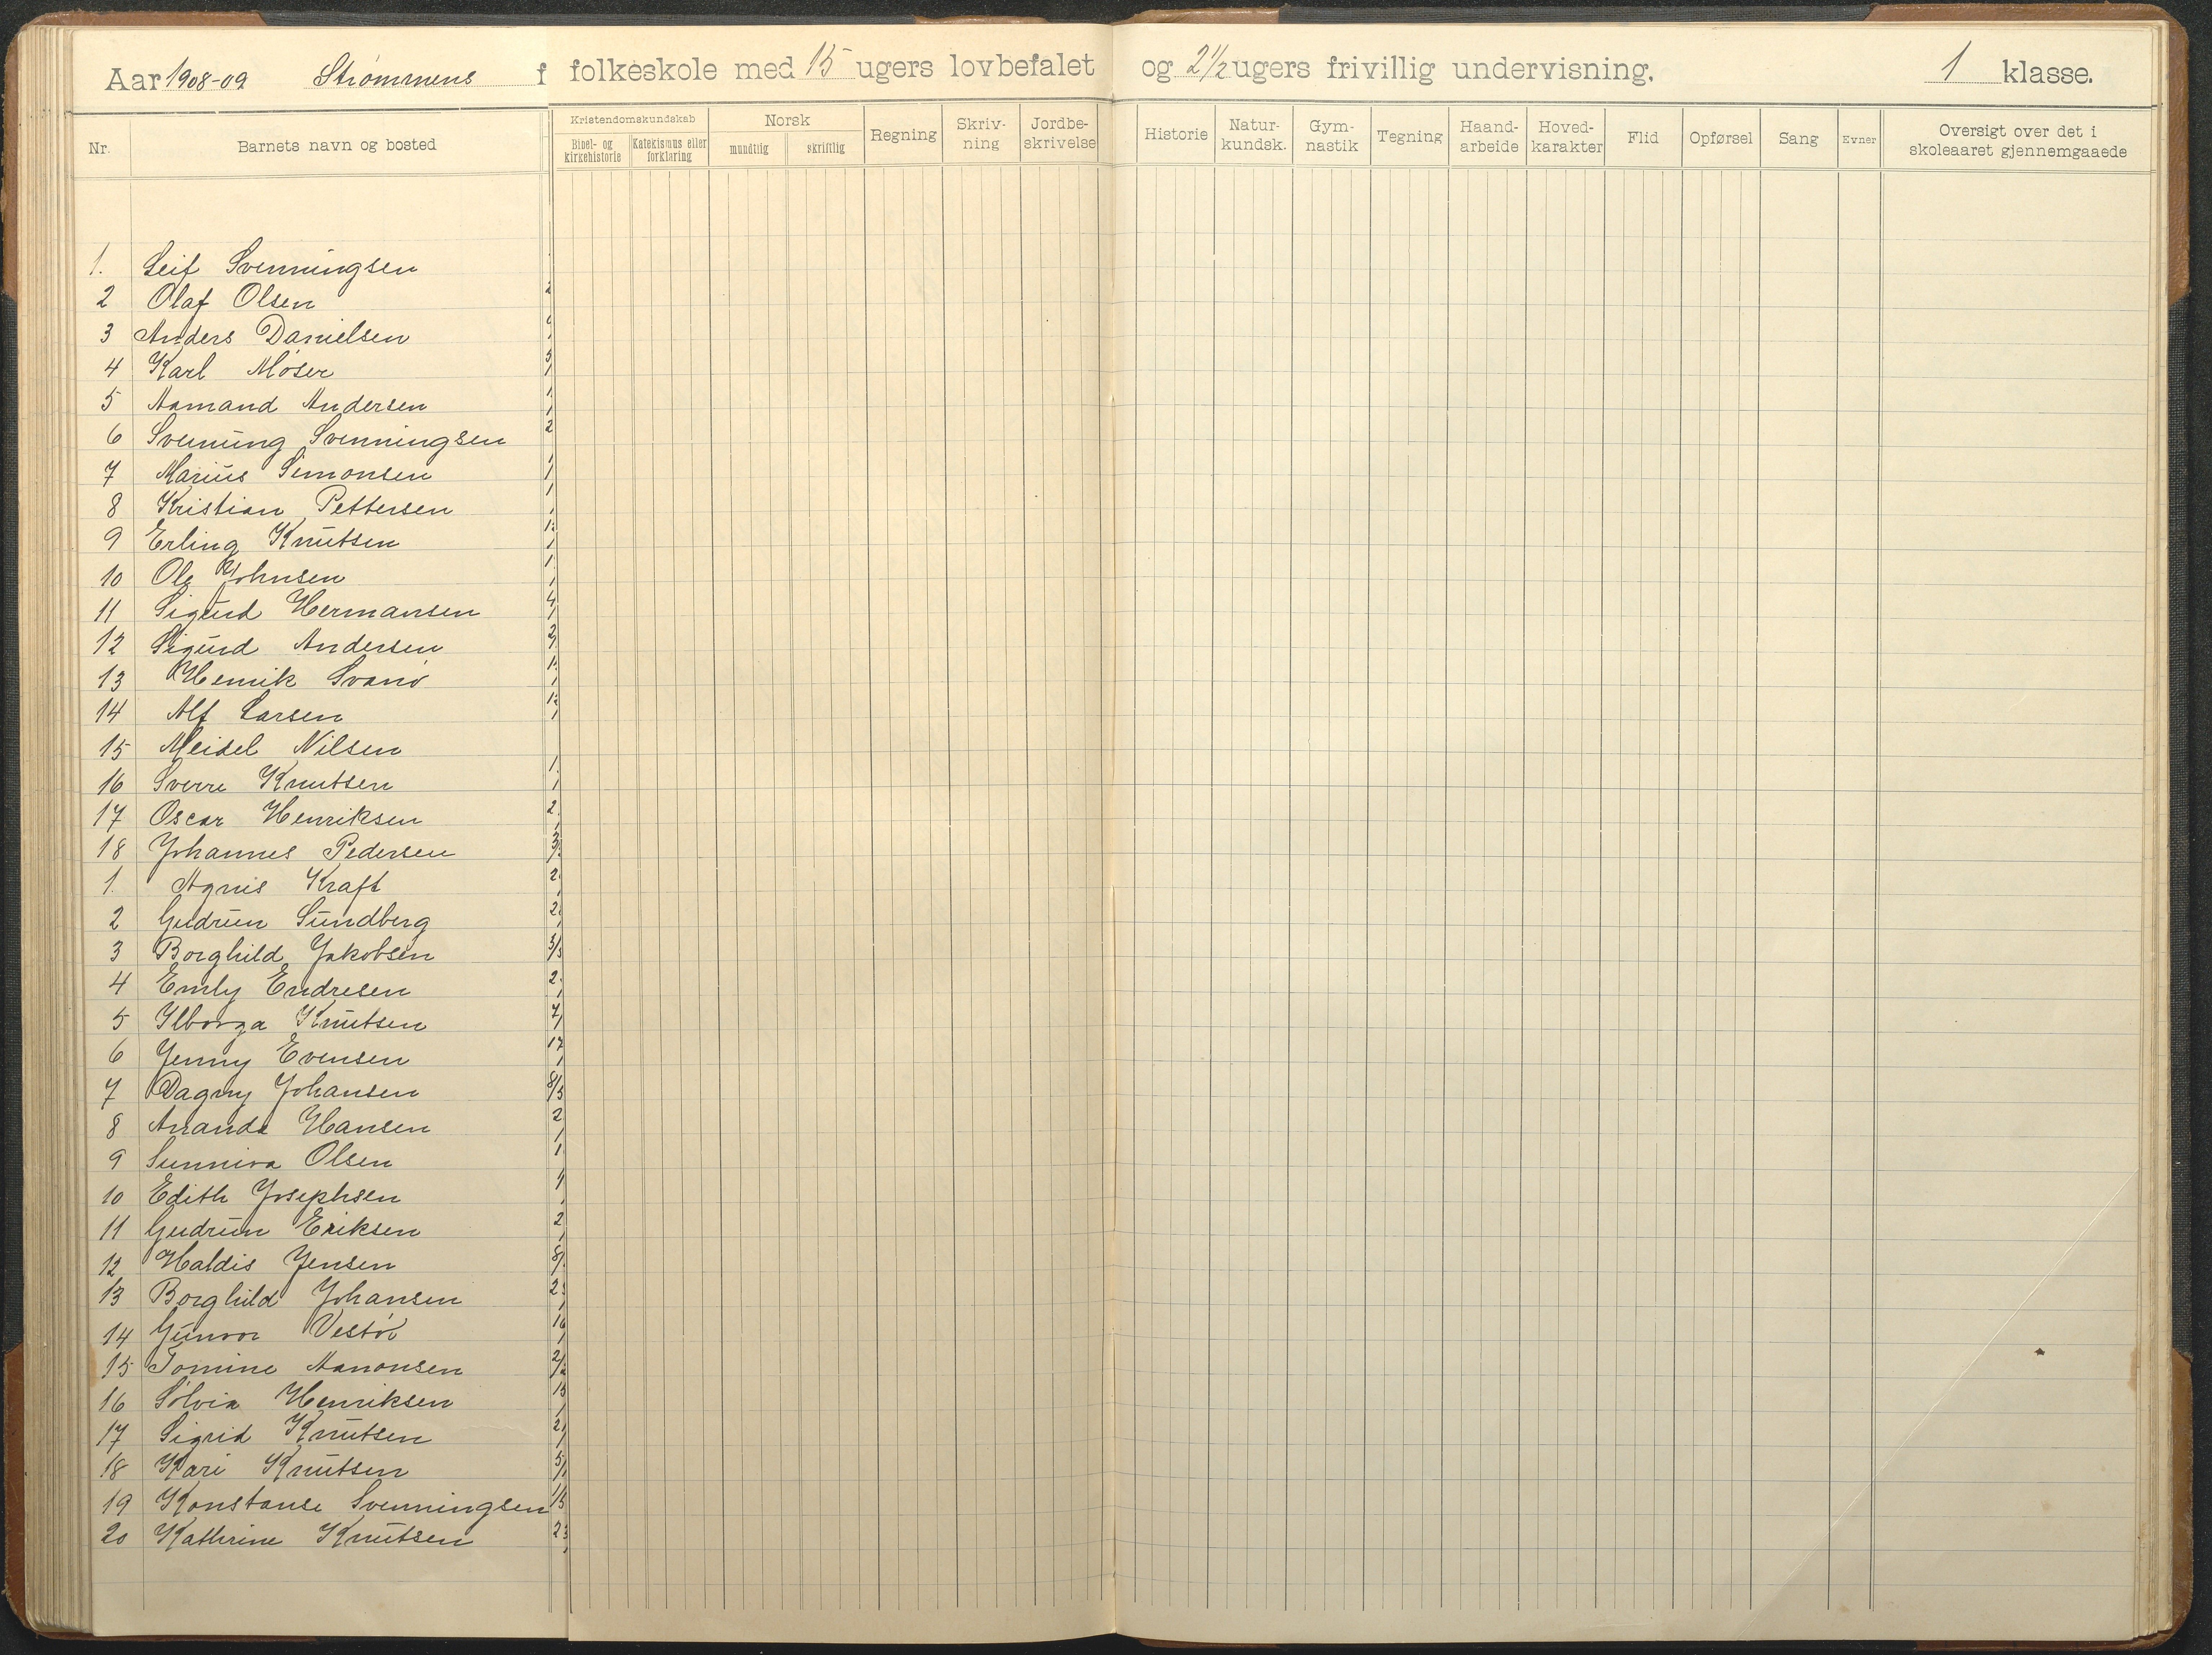 Aar 1908-09 Strømmens f folkeskole med 15 ugers lovbefalet og 2 1/2 ugers frivillig undervisning. 1 klasse.
Nr. Barnets navn og bosted Kristendomskundskab Bibel- og kirkehistorie Katekismus eller forklaring Norsk mundtlig skriftlig Regning Skriv-ning Jordbe-skrivelse Historie Natur-kundsk. Gym-nastik Tegning Haand-arbeide Hoved-karakter Flid Opførsel Sang Evner Oversigt over det i skoleaaret gjennemgaaede
1. Leif Svenningsen
2 Olaf Olsen
3 Anders Danielsen
4 Karl Møser
5 Aamand Andersen
6 Svenning Svenningsen
7 Marius Simonsen
8 Kristian Pettersen
9 Erling Knutsen
10 Ole Johnsen
11 Sigurd Hermansen
12 Sigurd Andersen
13 Henrik Svanø
14 Alf Larsen
15 Meidel Nilsen
16 Sverre Knutsen
17 Oscar Henriksen
18 Johannes Pedersen
1. Agnis Kraft
2 Gudrun Sundberg
3 Borghild Jakobsen
4 Emly Endresen
5 Ilborga Knutsen
6 Jenny Evensen
7 Dagny Johansen
8 Ananda Hansen
9 Sunniva Olsen
10 Edith Josephsen
11 Gudrun Eriksen
12 Haldis Jensen
13 Borghild Johansen
14 Gunvor Vestøl
15 Tomine Aanonsen
16 Solvia Henriksen
17 Sigrid Knutsen
18 Kari Knutsen
19 Konstanse Svenningsen
20 Kathrine Knutsen